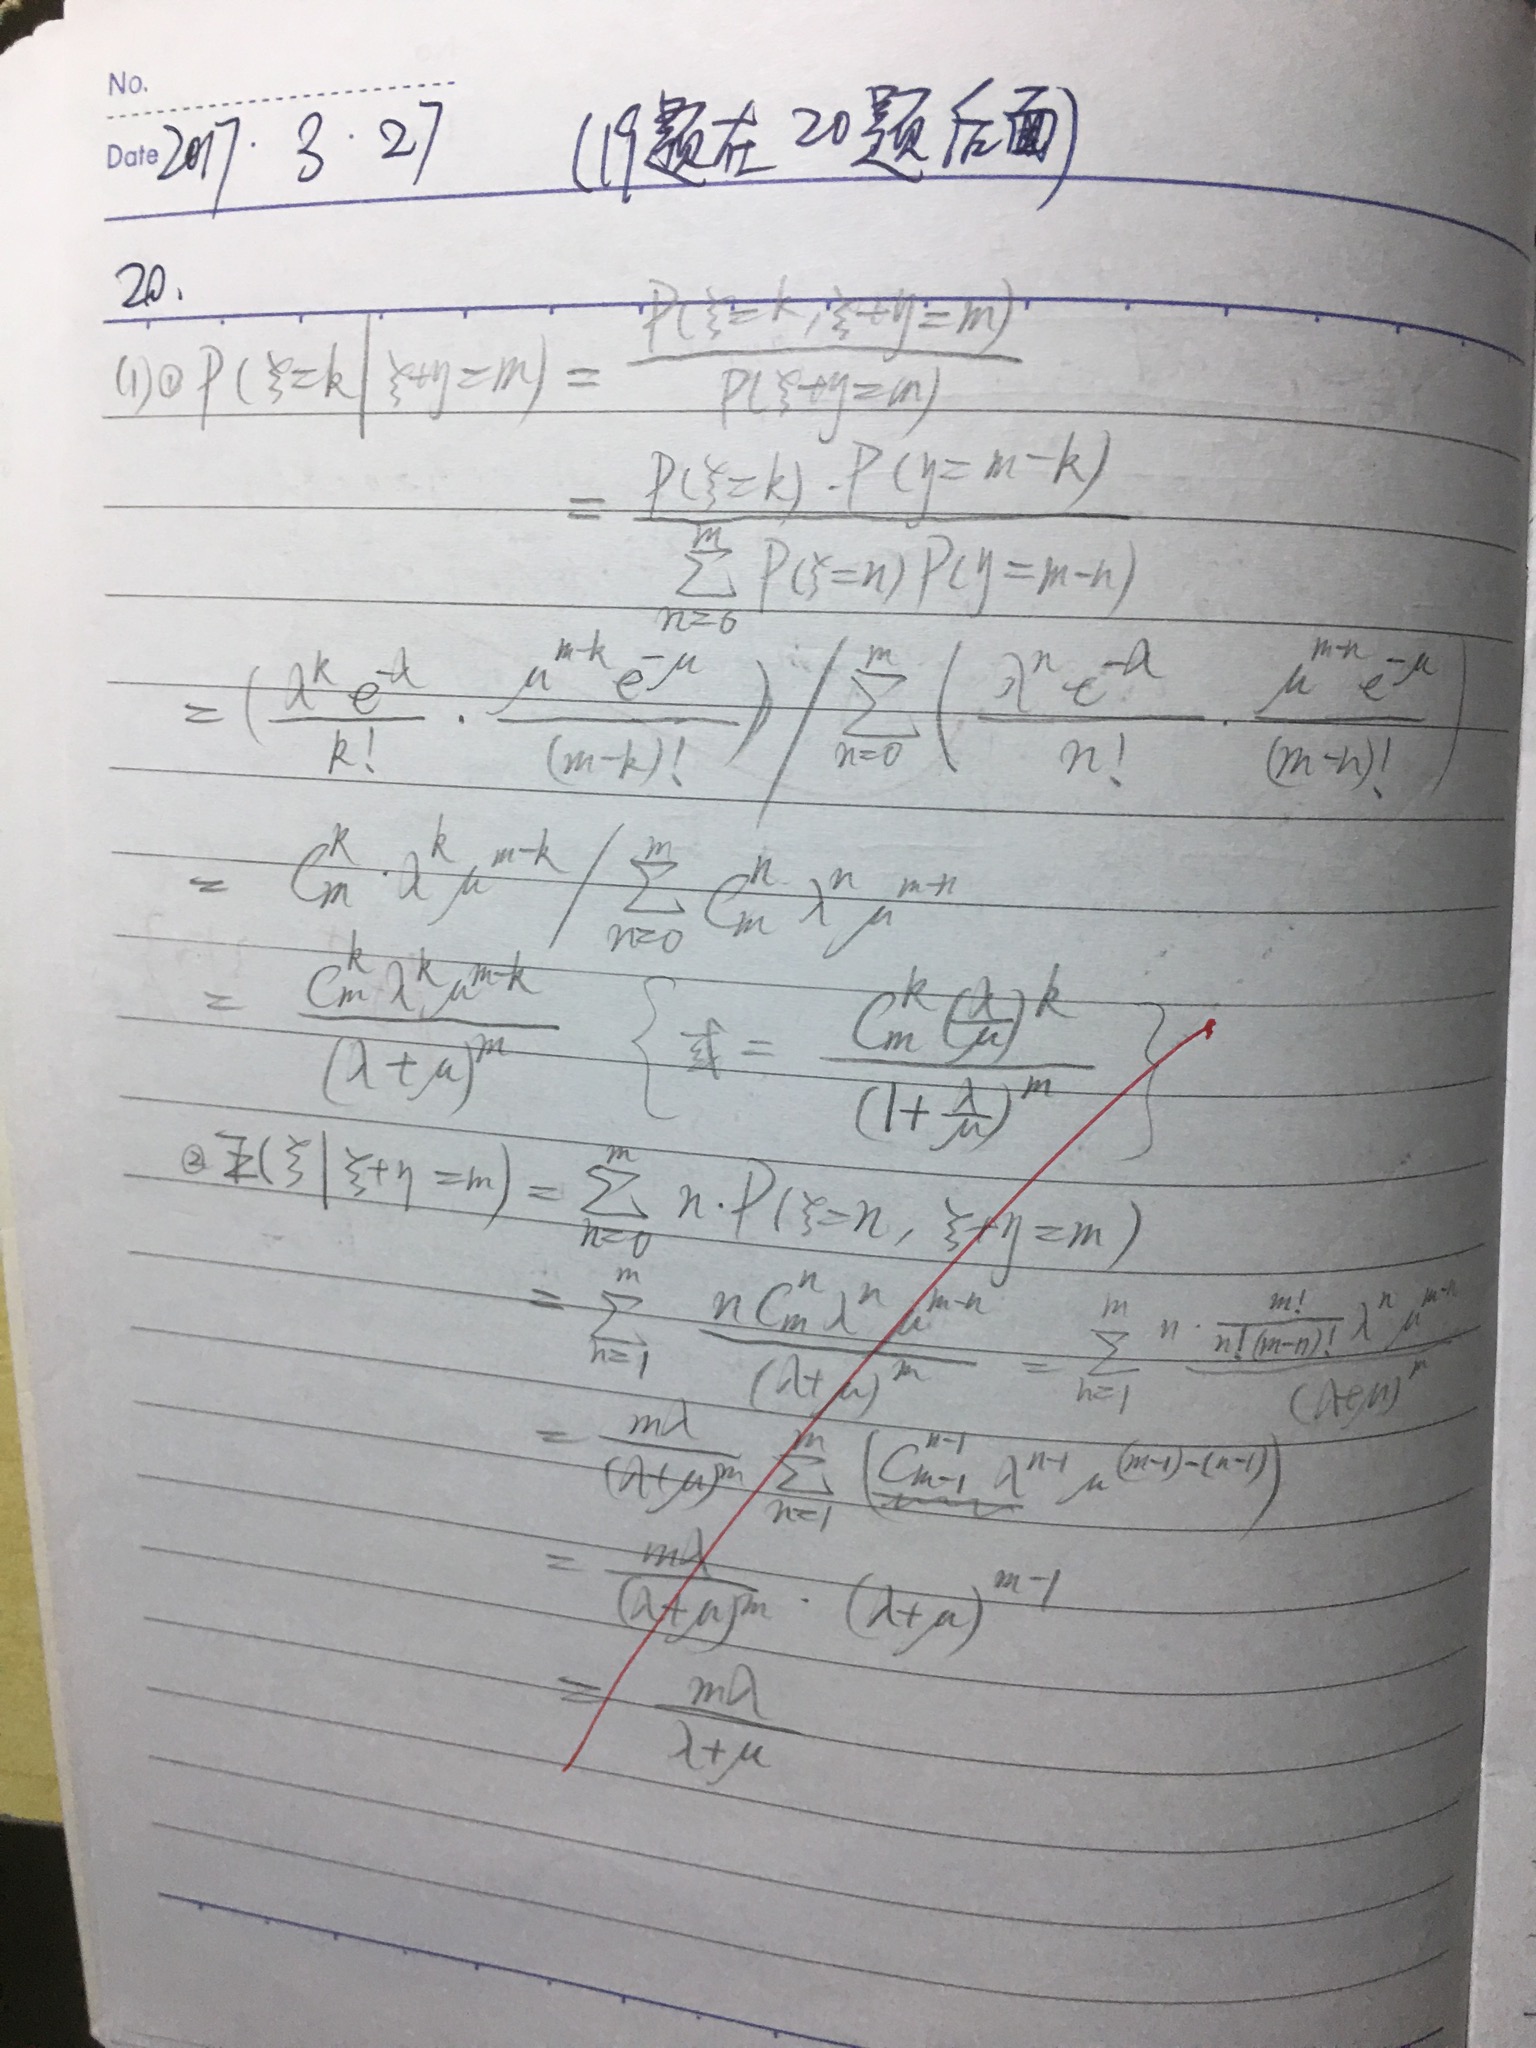 No.
Date 2017.3.27 (19题在20题后面)
20.
(1)① P(ξ=k|ξ+η=m) = P(ξ=k, ξ+η=m) / P(ξ+η=m)
= P(ξ=k)·P(η=m-k) / ∑_{n=0}^{m} P(ξ=n)P(η=m-n)
= (λ^k e^{-λ} / k! · μ^{m-k} e^{-μ} / (m-k)!) / ∑_{n=0}^{m} (λ^n e^{-λ} / n! · μ^{m-n} e^{-μ} / (m-n)!)
= C_m^k · λ^k μ^{m-k} / ∑_{n=0}^{m} C_m^n λ^n μ^{m-n}
= C_m^k λ^k μ^{m-k} / (λ+μ)^m {或 = C_m^k (λ/μ)^k / (1+λ/μ)^m}
② E(ξ|ξ+η=m) = ∑_{n=0}^{m} n·P(ξ=n, ξ+η=m)
= ∑_{n=1}^{m} n C_m^n λ^n μ^{m-n} / (λ+μ)^m = ∑_{n=1}^{m} n · m! / n!(m-n)! λ^n μ^{m-n} / (λ+μ)^m
= mλ / (λ+μ)^m ∑_{n=1}^{m} (C_{m-1}^{n-1} λ^{n-1} μ^{(m-1)-(n-1)})
= mλ / (λ+μ)^m · (λ+μ)^{m-1}
= mλ / λ+μ